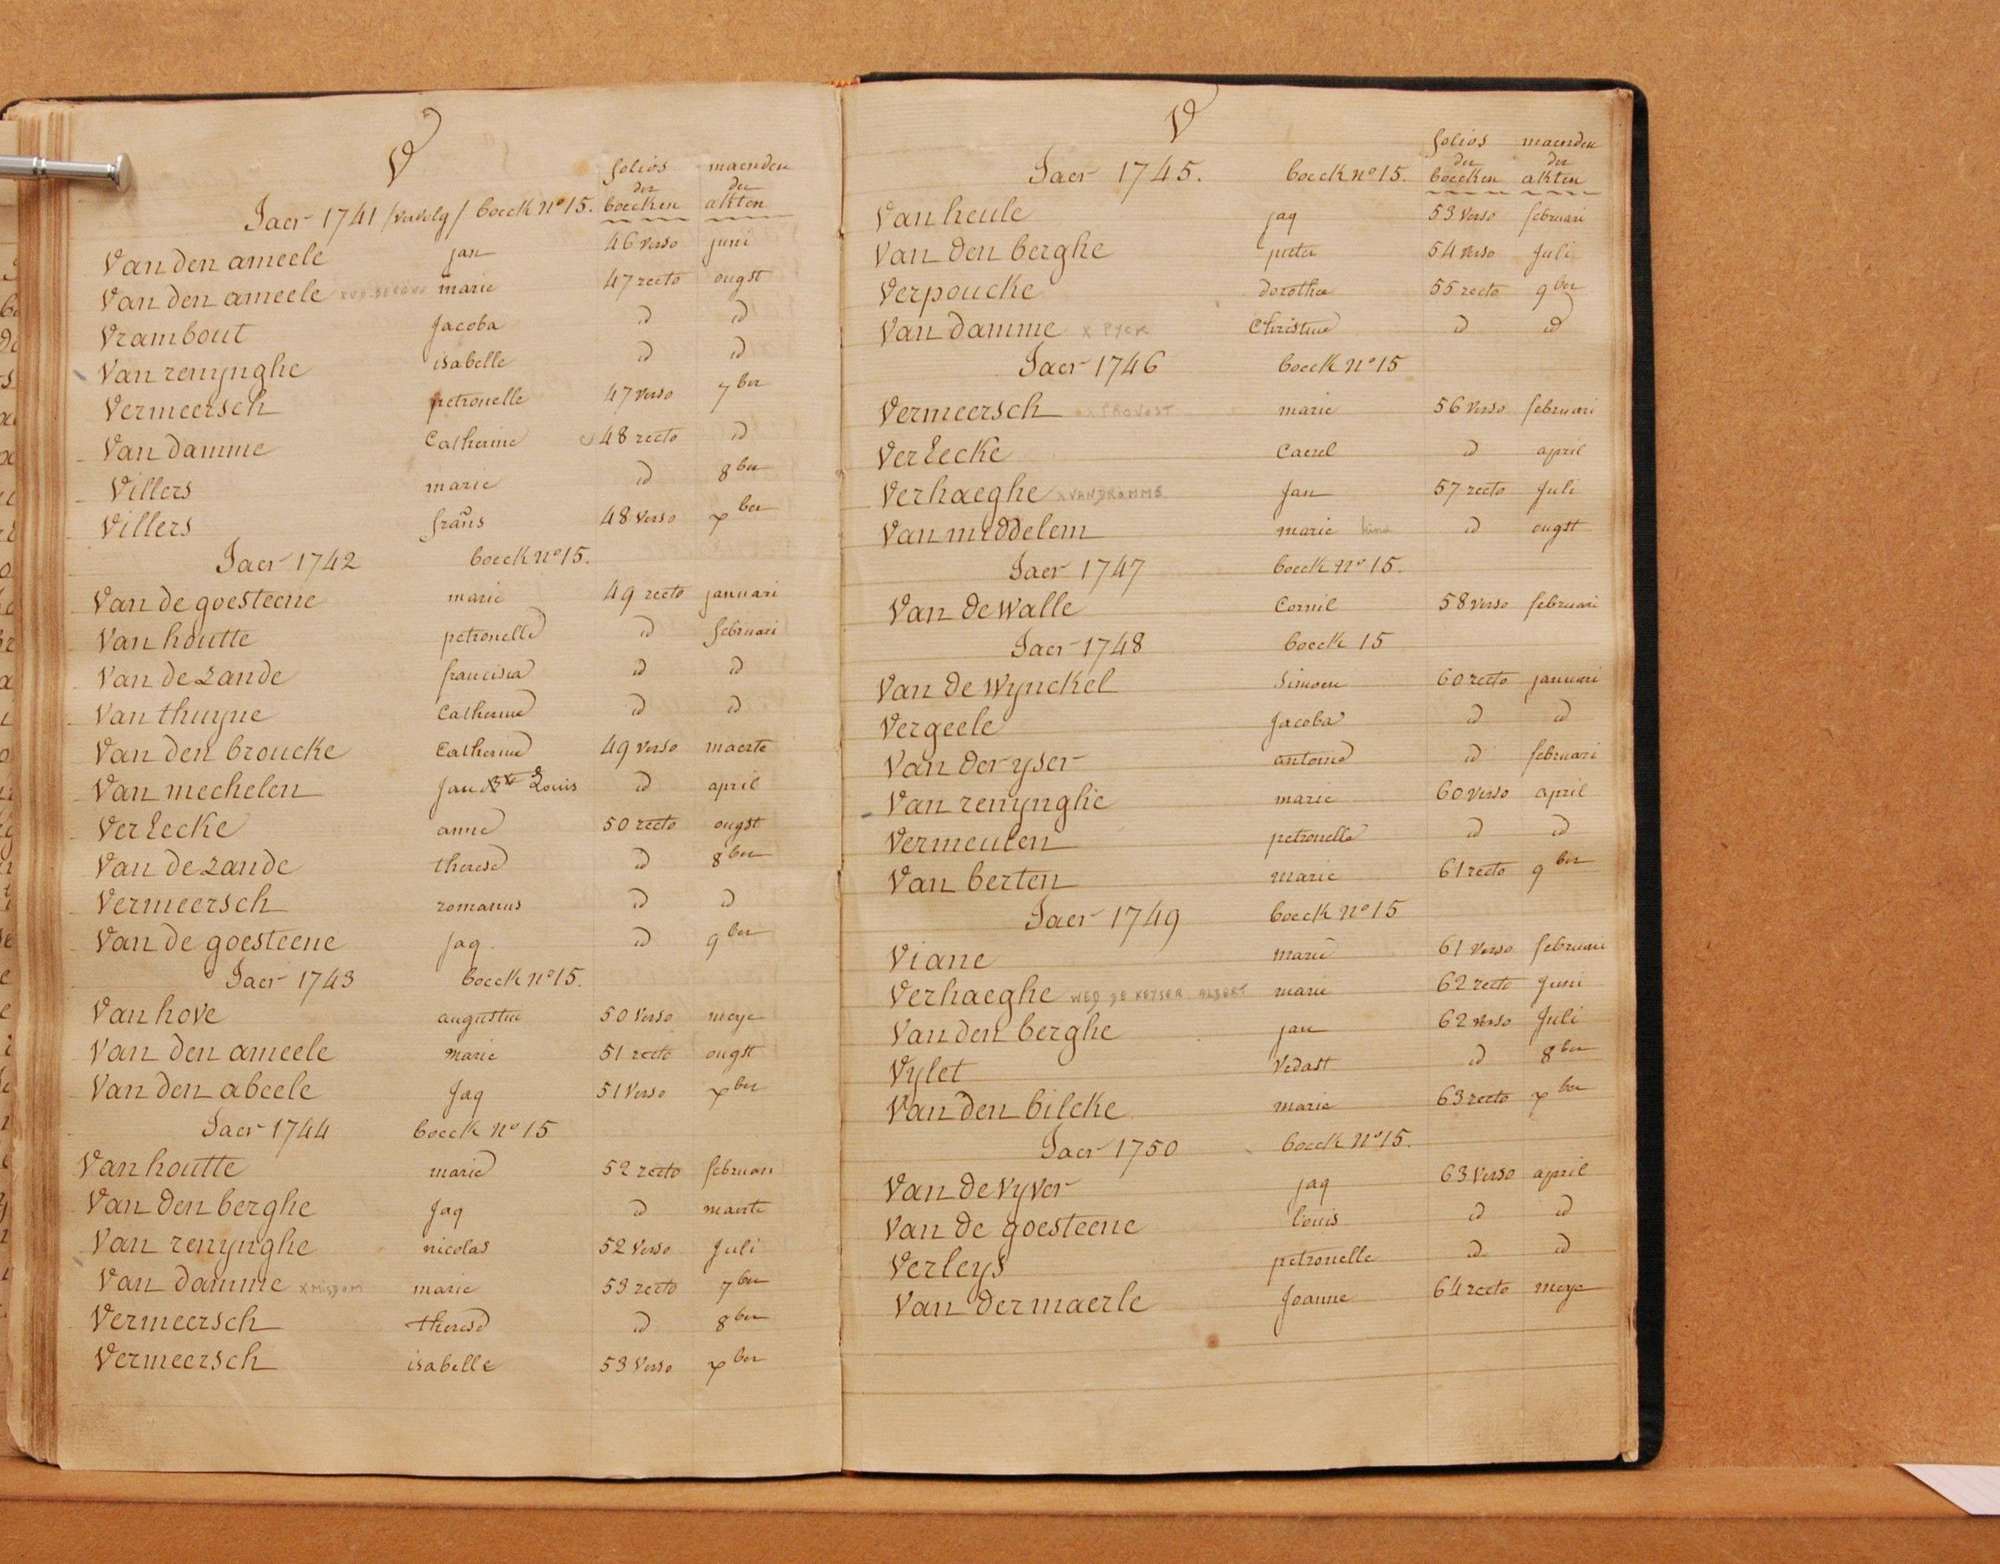 V
folios maenden
der der
Jaer 1741 /vervolg/ boeck n° 15. boecken akten
Van den ameele jan 46 verso juni
Van den ameele marie 47 recto ougst
Vrambout Jacoba id id
Van renynghe isabelle id id
Vermeersch petronelle 47 verso 7ber
Van damme Catherine 48 recto id
Villers marie id 8ber
Villers frans 48 verso xber
Jaer 1742 boeck n° 15.
Van de goesteene marie 49 recto januari
Van houtte petronelle id februari
Van de zande francisca id id
Van thuyne Catherine id id
Van den broucke Catherine 49 verso maerte
Van mechelen Jan Bte Louis id april
Verlecke anne 50 recto ougst
Van de zande therese id 8ber
Vermeersch romanus id id
Van de goesteene Jaq. id 9ber
Jaer 1743 boeck n° 15.
Van hove augustin 50 verso meye
Van den ameele marie 51 recto ougst
Van den abeele Jaq 51 verso xber
Jaer 1744 boeck n° 15
Van houtte marie 52 recto februari
Van den berghe Jaq id maerte
Van renynghe nicolas 52 verso Juli
Van damme marie 53 recto 7ber
Vermeersch therese id 8ber
Vermeersch isabelle 53 verso xber
V
folios maenden
der der
Jaer 1745. boeck n° 15. boecken akten
Van heule jaq 53 verso februari
Van den berghe pieter 54 verso Juli
Verpoucke dorothee 55 recto 9ber
Van damme x PYCK Christine id id
Jaer 1746 boeck n° 15
Vermeersch x PROVOST marie 56 verso februari
Verlecke Caerel id april
Verhaeghe x VANDRAMME Jan 57 recto Juli
Van middelem marie kind id ougst
Jaer 1747 boeck n° 15.
Van de walle Cornil 58 verso februari
Jaer 1748 boeck 15
Van de wynckel Simoen 60 recto januari
Vergeele Jacoba id id
Van der yser antoine id februari
Van renynghe marie 60 verso april
Vermeulen petronelle id id
Van berten marie 61 recto 9ber
Jaer 1749 boeck n° 15
Viane marie 61 verso februari
Verhaeghe WED DE KEYSER ALBERT marie 62 recto Juni
Van den berghe jan 62 verso Juli
Vylet Vedast id 8ber
Van den bilcke marie 63 recto xber
Jaer 1750 boeck n° 15.
Van de vyver jaq 63 verso april
Van de goesteene louis id id
Verleys petronelle id id
Van dermaerle Joanne 64 recto meye